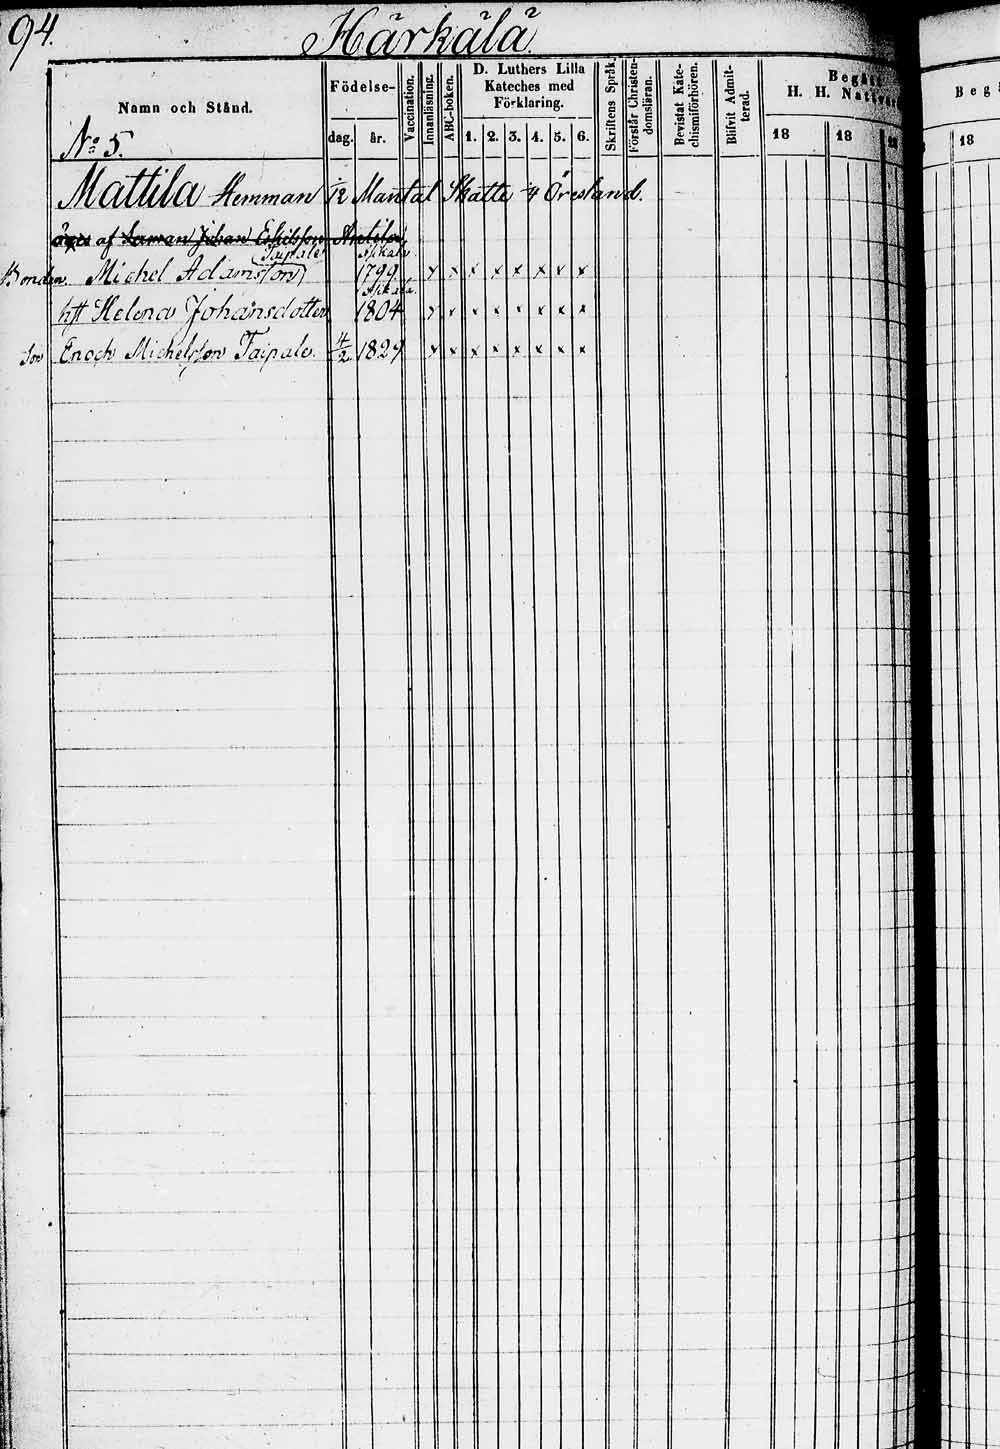 94.
Härkälä.
Namn och Stånd.
Födelse-
dag. år.
Vaccination.
Innanläsning.
ABC-boken.
D. Luthers Lilla
Kateches med
Förklaring.
1. 2. 3. 4. 5. 6.
Skriftens Språk.
Förstår Christen-
domsläran.
Bevistat Kate-
chismiförhören.
Blifvit Admit-
terad.
Begått
H. H. Nattvard
18 18 18
Begå
18
No 5.
Mattila Hemman 1/2 Mantal Skatte 4 Öresland.
äges af Johan Eskilsson Anttila
Taipale
Bonden Michel Adamsson 1799 x x x x x x x x
hst Helena Johansdotter 1804 x x x x x x x x
Son Enoch Michelsson Taipale. 4/2 1829 x x x x x x x x